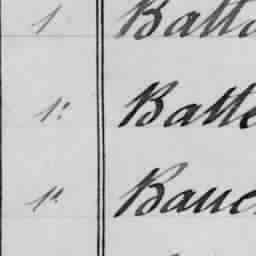 1 Batta
1: Batte
1. Bauc